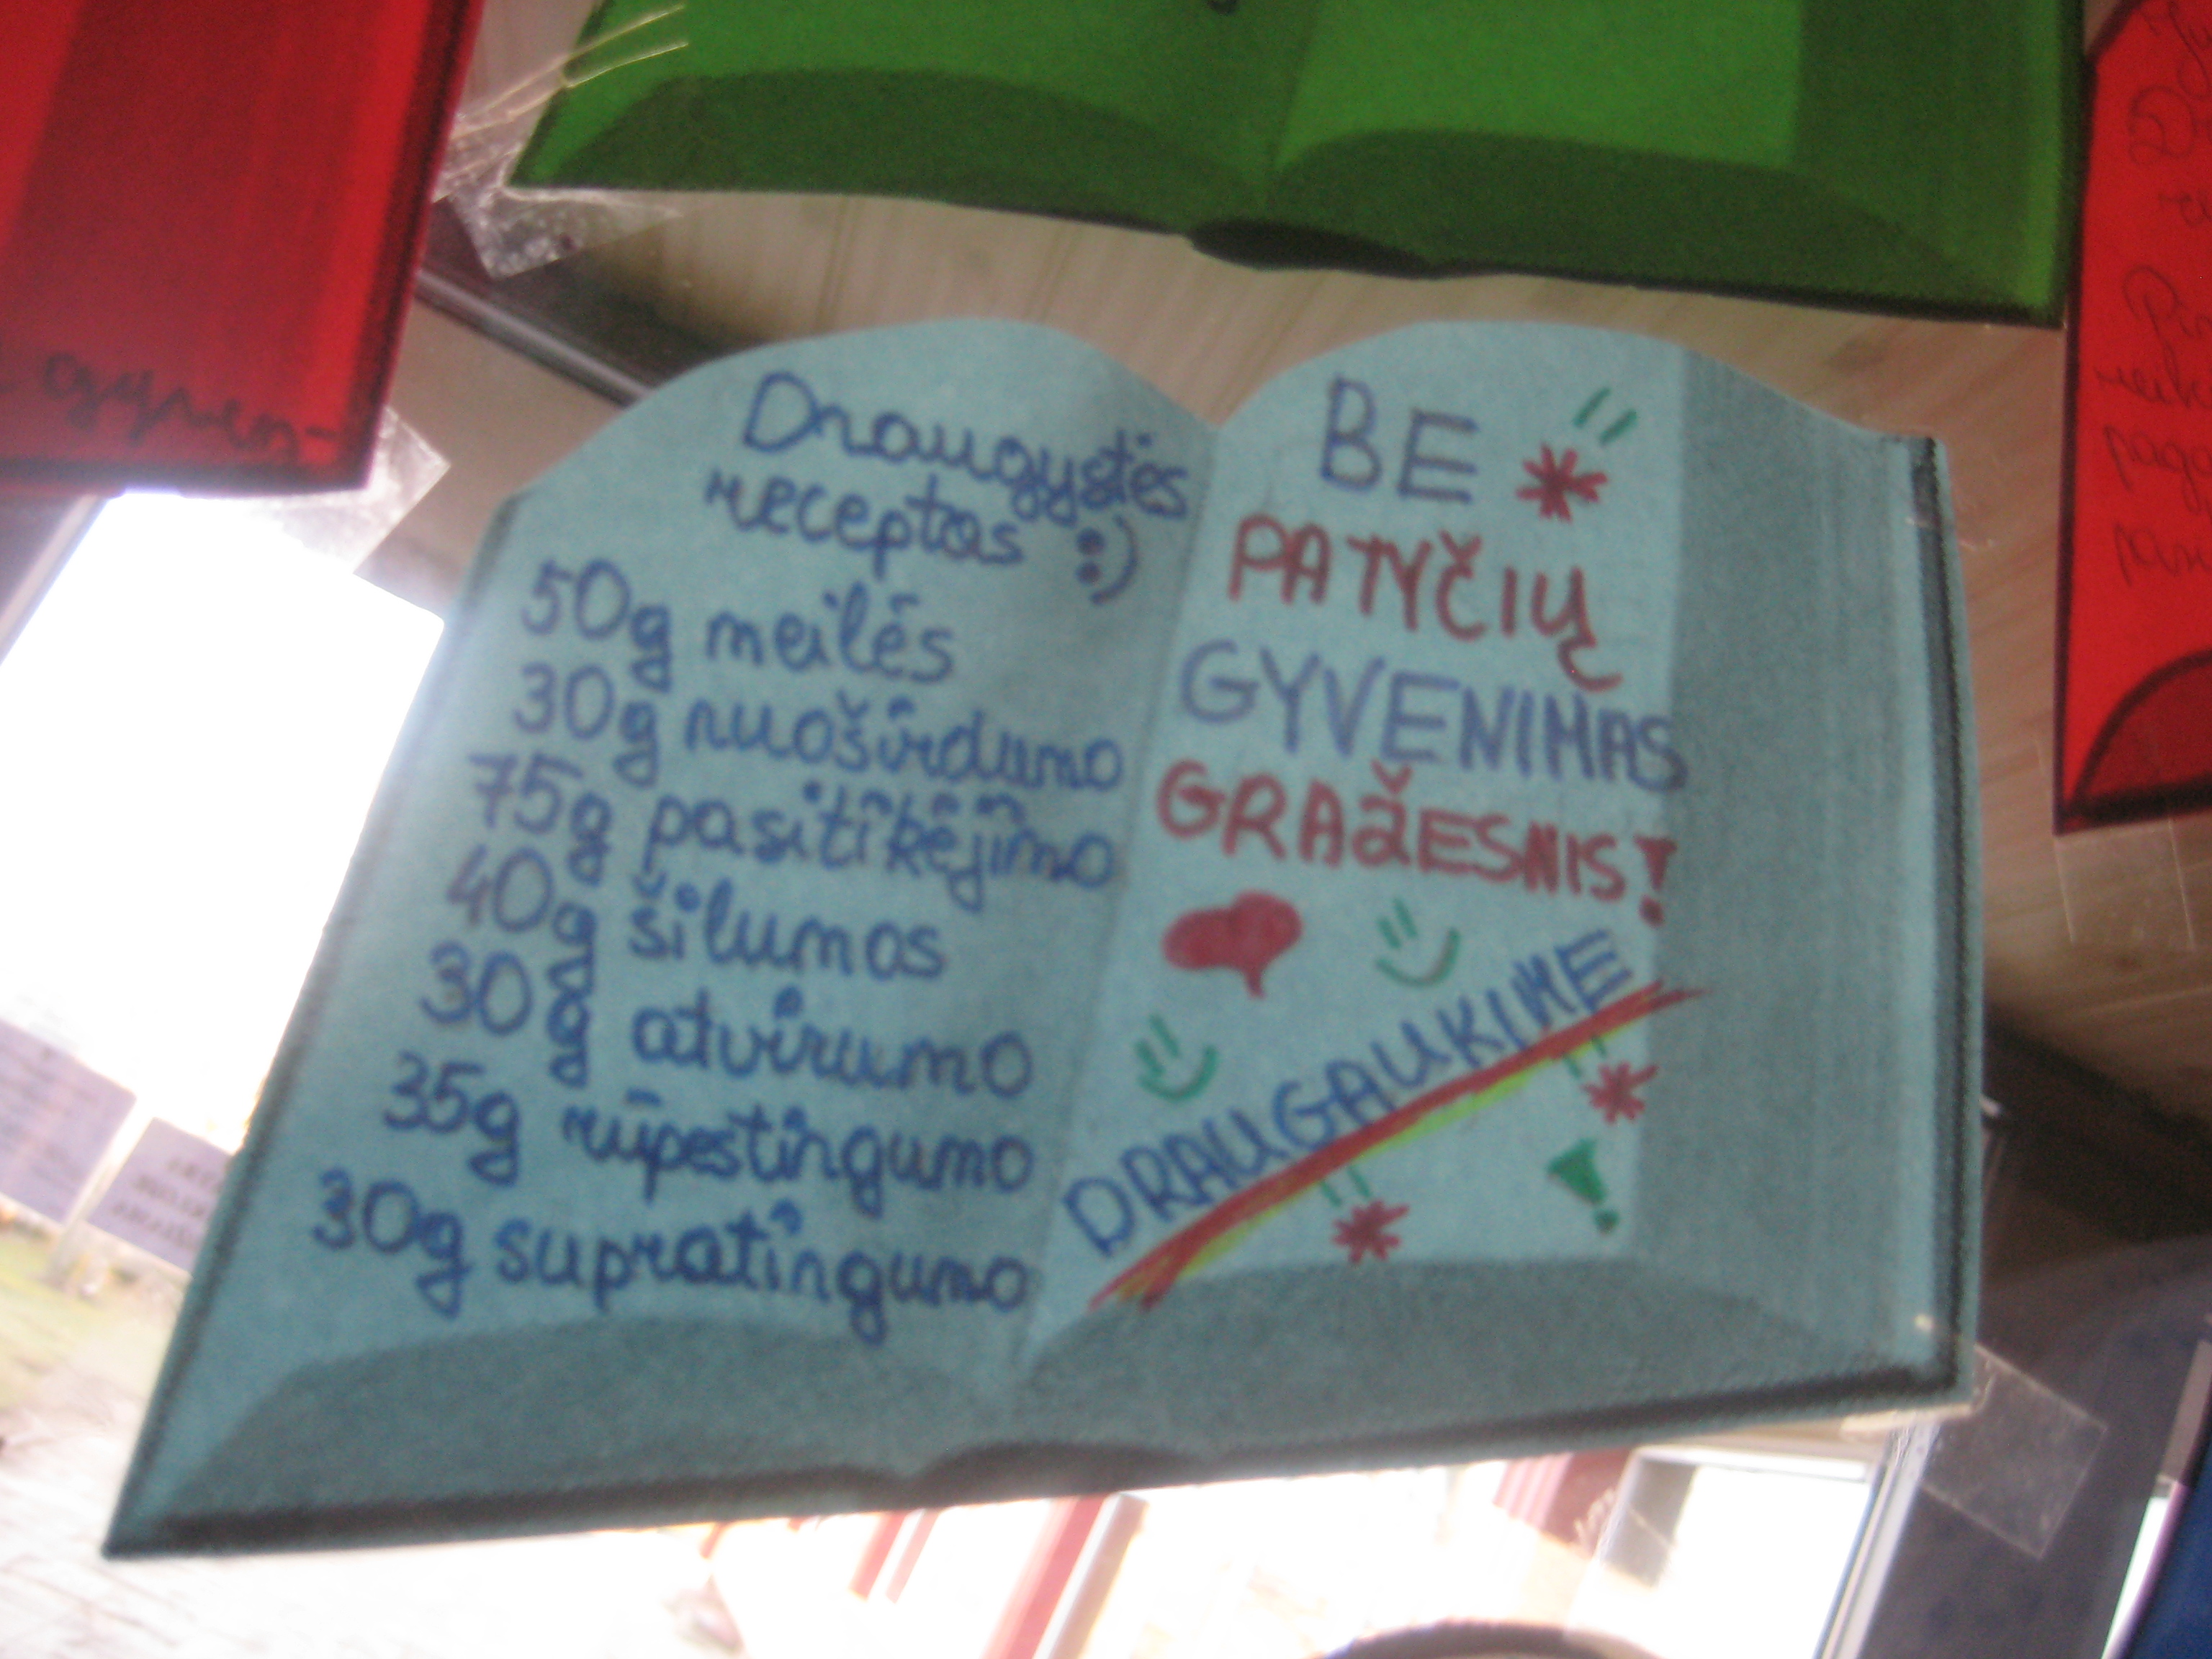 Draugystės
receptas :)
50g meilės
30g nuoširdumo
75g pasitikėjimo
40g šilumos
30g atvirumo
35g rūpestingumo
30g supratingumo
BE
PATYČIŲ
GYVENIMAS
GRAŽESNIS!
DRAUGAUKIME
!
gyven-